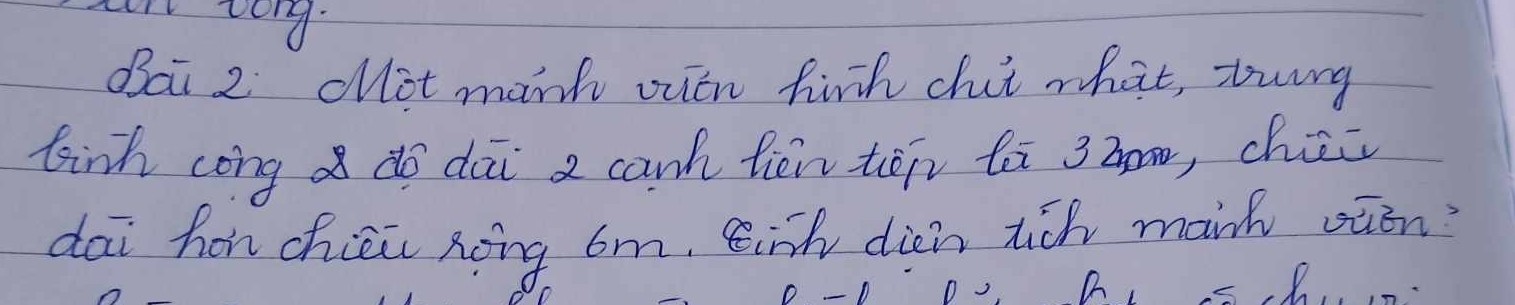 vòng.
Bài 2: Một mảnh vườn hình chữ nhật, trung
bình cộng độ dài 2 cạnh liên tiếp là 32m, chiều
dài hơn chiều rộng 6m. Tính diện tích mảnh vườn?